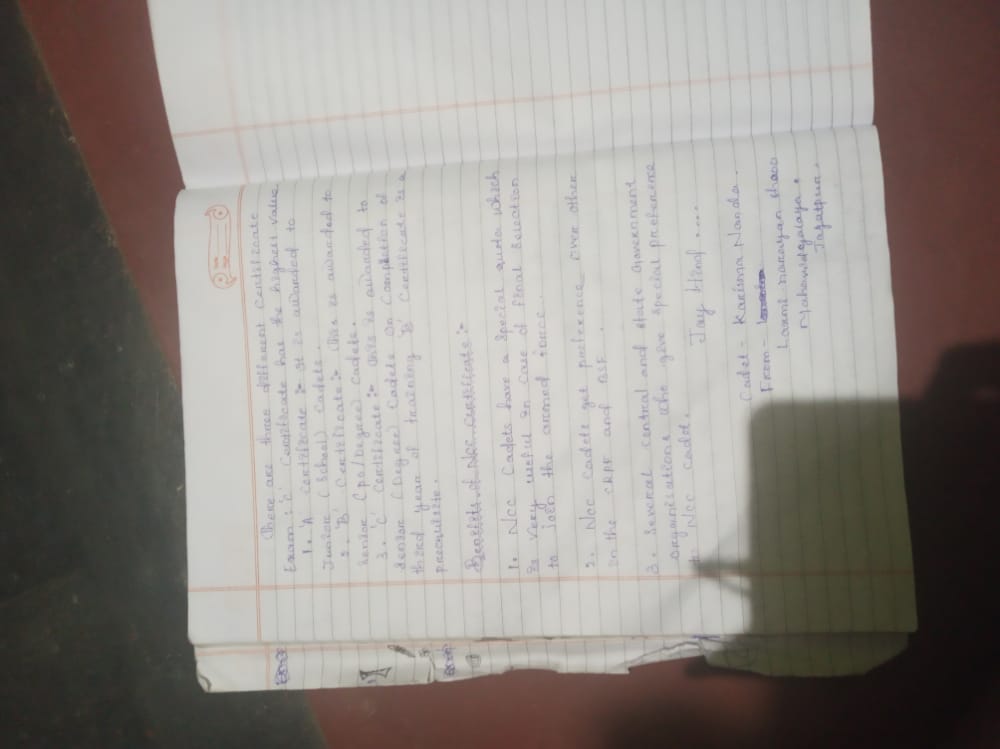 There are three different Certificate
Exam : 'C' Certificate has the highest value
1. 'A' certificate :- It is awarded to
Junior (School) cadets.
2. 'B' Certificate :- This is awarded to
Senior (pe/Degree) Cadets.
3. 'C' certificate :- This is awarded to
Senior (Degree) Cadets on Completion of
third year of training 'B' Certificate is a
precquisite.
Benefits of Ncc certificate :-
1. Ncc Cadets have a special quota which
is very useful in case of final Selection
to join the armed force.
2. Ncc cadets get preference over other
in the CRPF and ASF.
3. Several central and state Government
organisations also give special preference
to Ncc cadet.
Jay Hind ....
Cadet - Karisma Nanda.
From -
Laxmi narayan
Mahavidyalaya.
Jagatpur.